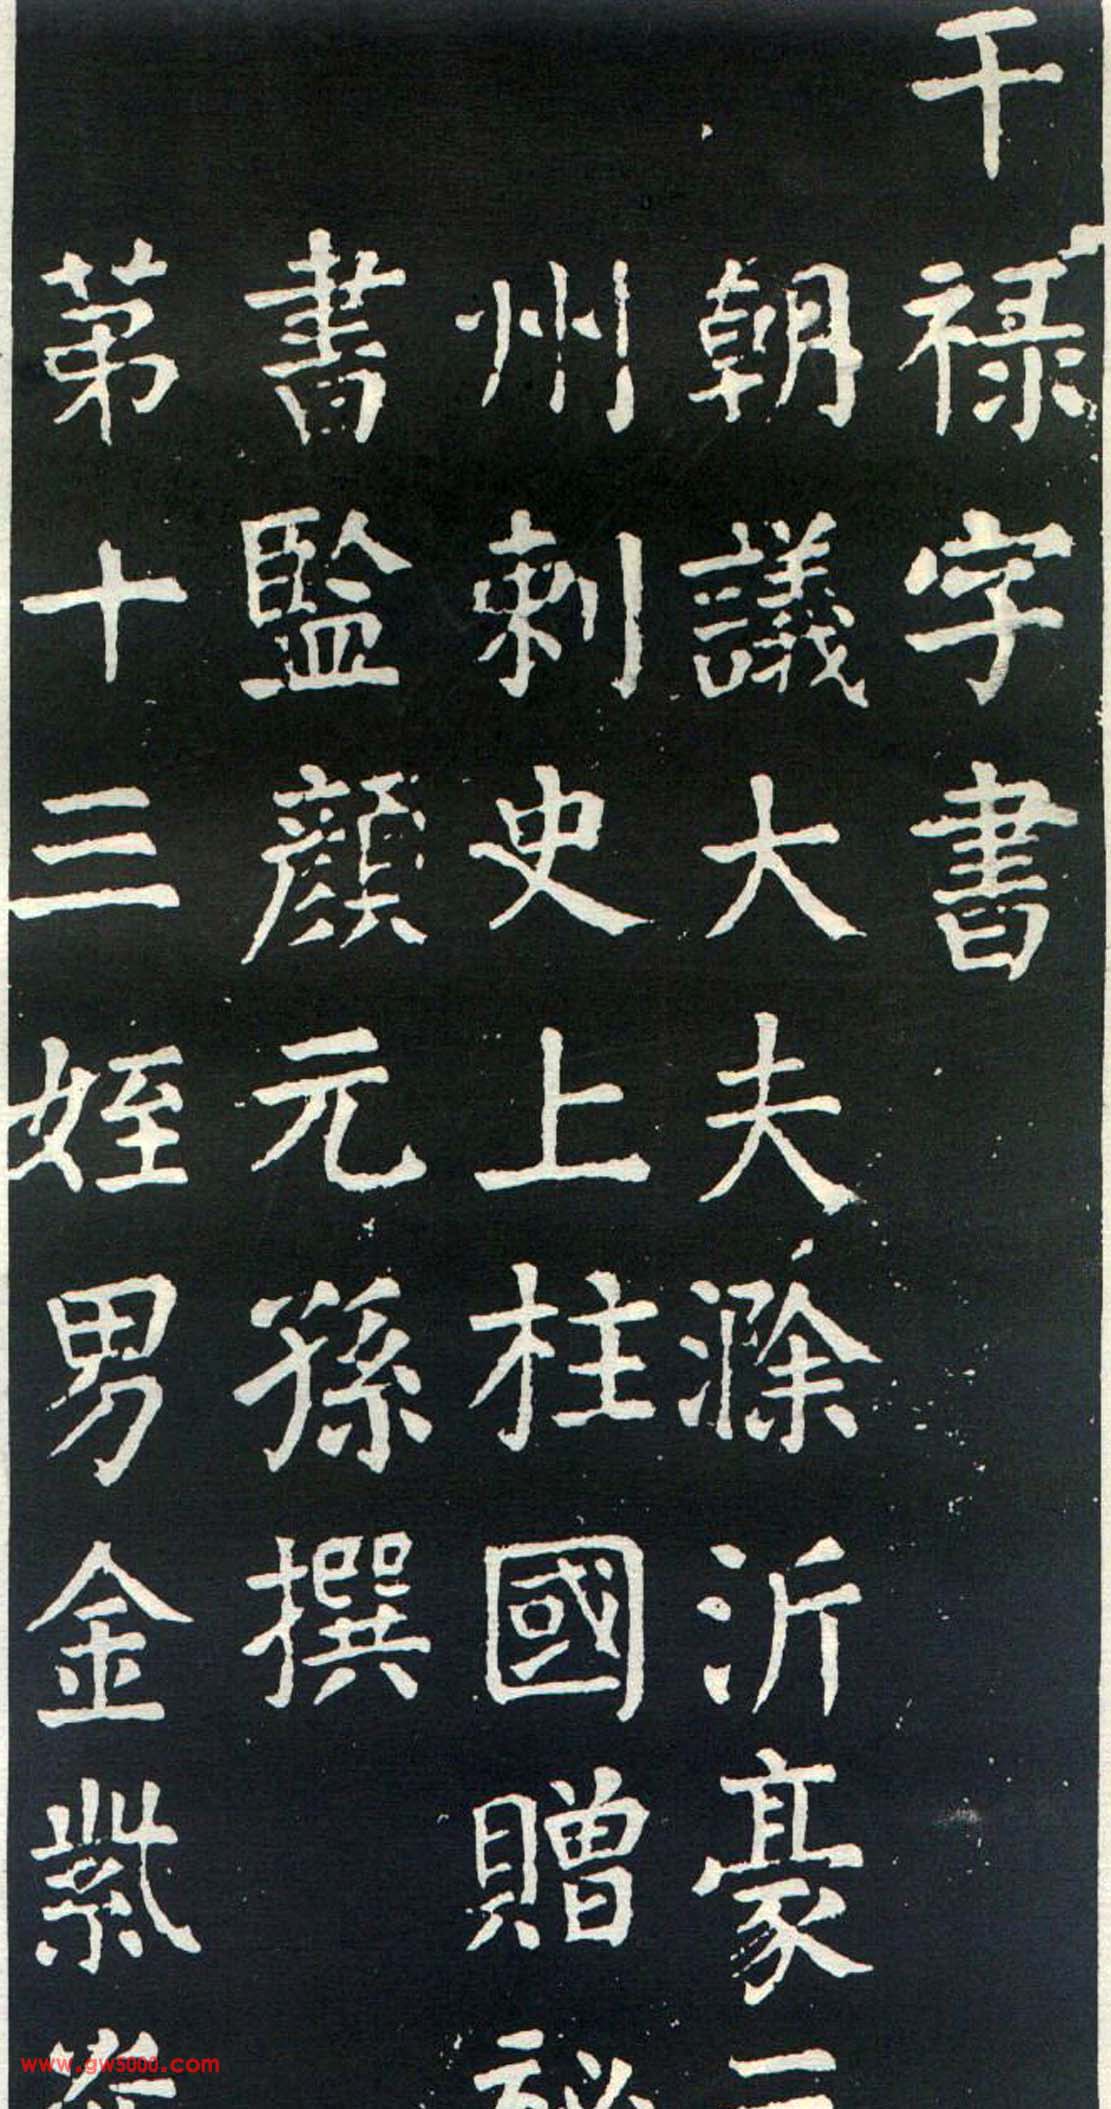 干禄字書
朝議大夫滁沂豪三
州刺史上柱國贈祕
書監顏元孫撰
苐十三姪男金紫
www.gw5000.com